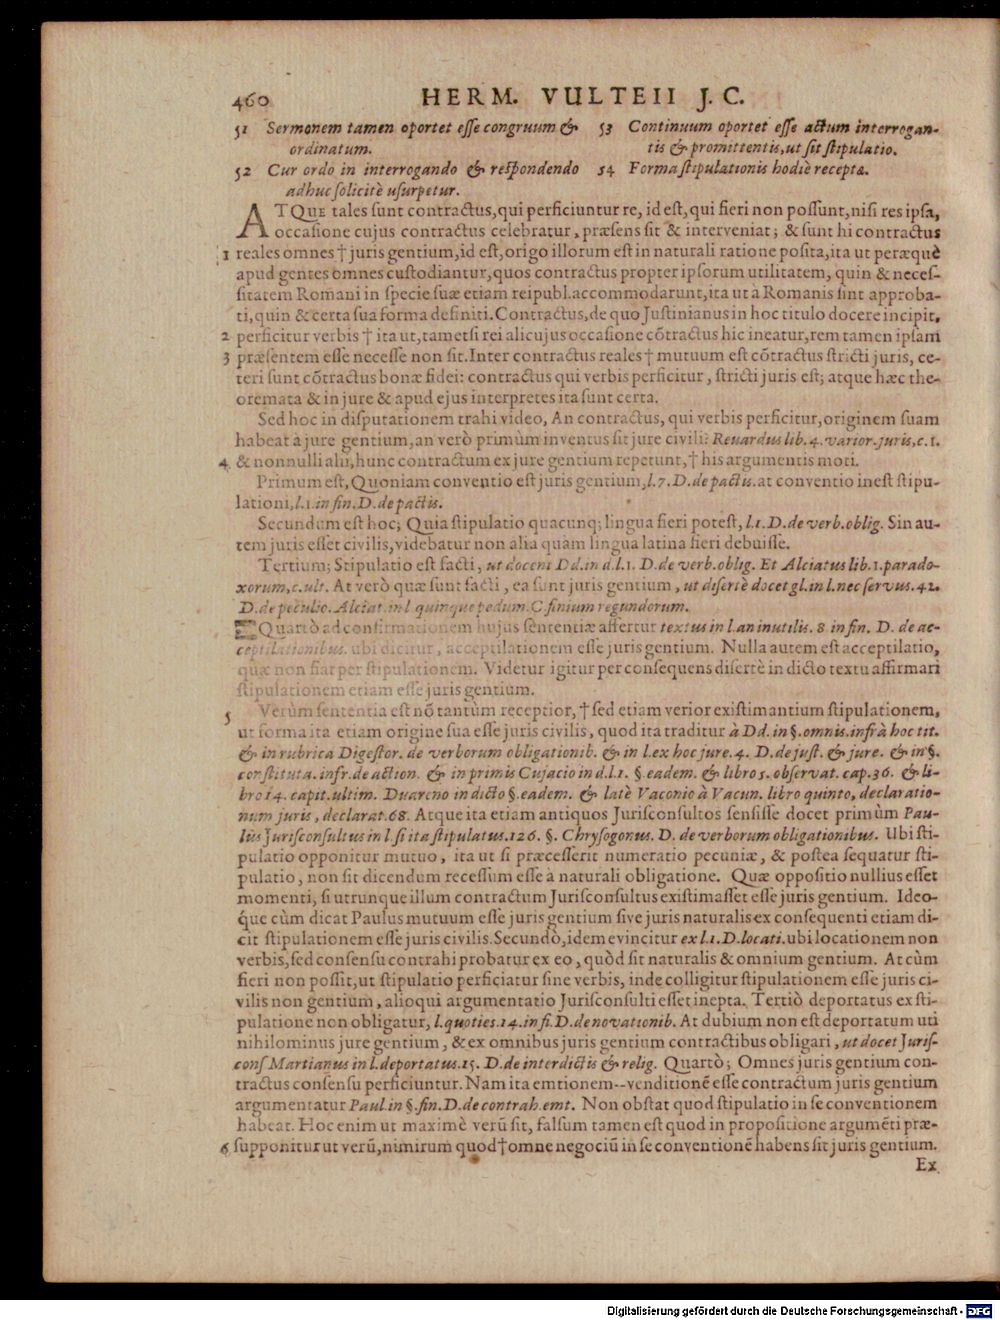 460 HERM. VULTEII J. C.
51 Sermonem tamen oportet eſſe congruum &
ordinatum.
52 Cur ordo in interrogando & reſpondendo
adhuc ſolicitè uſurpetur.
53 Continuum oportet eſſe actum interrogan-
tis & promittentis, ut ſit ſtipulatio.
54 Forma ſtipulationis hodiè recepta.
ATQUE tales ſunt contractus, qui perficiuntur re, id eſt, qui fieri non poſſunt, niſi res ipſa,
occaſione cujus contractus celebratur, præſens ſit & interveniat; & ſunt hi contractus
1 reales omnes † juris gentium, id eſt, origo illorum eſt in naturali ratione poſita, ita ut peræquè
apud gentes omnes cuſtodiantur, quos contractus propter ipſorum utilitatem, quin & neceſ-
ſitatem Romani in ſpecie ſuæ etiam reipubl. accommodarunt, ita ut à Romanis ſint approba-
ti, quin & certa ſua forma definiti. Contractus, de quo Juſtinianus in hoc titulo docere incipit,
2 perficitur verbis † ita ut, tametſi rei alicujus occaſione cõtractus hic ineatur, rem tamen ipſam
3 præſentem eſſe neceſſe non ſit. Inter contractus reales † mutuum eſt cõtractus ſtricti juris, ce-
teri ſunt cõtractus bonæ fidei: contractus qui verbis perficitur, ſtricti juris eſt; atque hæc the-
oremata & in jure & apud ejus interpretes ita ſunt certa.
Sed hoc in diſputationem trahi video, An contractus, qui verbis perficitur, originem ſuam
habeat à jure gentium, an verò primùm inventus ſit jure civili? Reuardus lib. 4. varior. juris, c. 1.
4 & nonnulli alii, hunc contractum ex jure gentium repetunt, † his argumentis moti.
Primum eſt, Quoniam conventio eſt juris gentium, l. 7. D. de pactis. at conventio ineſt ſtipu-
lationi, l. 1. in fin. D. de pactis.
Secundum eſt hoc; Quia ſtipulatio quacunq; lingua fieri poteſt, l. 1. D. de verb. oblig. Sin au-
tem juris eſſet civilis, videbatur non alia quàm lingua latina fieri debuiſſe.
Tertium; Stipulatio eſt facti, ut docent Dd. in d. l. 1. D. de verb. oblig. Et Alciatus lib. 1. parado-
xorum, c. ult. At verò quæ ſunt facti, ea ſunt juris gentium, ut diſertè docet gl. in l. nec ſervus. 42.
D. de peculio. Alciat. in l quinque pedum. C. finium regundorum.
Quartò ad confirmationem hujus ſententiæ affertur textus in l. an inutilis. 8. in fin. D. de ac-
ceptilationibus. ubi dicitur, acceptilationem eſſe juris gentium. Nulla autem eſt acceptilatio,
quæ non fiat per ſtipulationem. Videtur igitur per conſequens diſertè in dicto textu affirmari
ſtipulationem etiam eſſe juris gentium.
5 Verùm ſententia eſt nõ tantùm receptior, † ſed etiam verior exiſtimantium ſtipulationem,
ut forma ita etiam origine ſua eſſe juris civilis, quod ita traditur à Dd. in §. omnis. infrà hoc tit.
& in rubrica Digeſtor. de verborum obligationib. & in l. ex hoc jure. 4. D. de juſt. & jure. & in §.
conſtituta. infr. de action. & in primis Cujacio in d. l. 1. §. eadem. & libro 5. obſervat. cap. 36. & li-
bro 14. capit. ultim. Duareno in dicto §. eadem. & latè Vaconio à Vacun. libro quinto, declaratio-
num juris, declarat. 68. Atque ita etiam antiquos Juriſconſultos ſenſiſſe docet primùm Pau-
lus Juriſconſultus in l. ſi ita ſtipulatus. 126. §. Chryſogonus. D. de verborum obligationibus. Ubi ſti-
pulatio opponitur mutuo, ita ut ſi præceſſerit numeratio pecuniæ, & poſtea ſequatur ſti-
pulatio, non ſit dicendum receſſum eſſe à naturali obligatione. Quæ oppoſitio nullius eſſet
momenti, ſi utrunque illum contractum Juriſconſultus exiſtimaſſet eſſe juris gentium. Ideo-
q́ue cùm dicat Paulus mutuum eſſe juris gentium ſive juris naturalis ex conſequenti etiam di-
cit ſtipulationem eſſe juris civilis. Secundò, idem evincitur ex l. 1. D. locati. ubi locationem non
verbis, ſed conſenſu contrahi probatur ex eo, quòd ſit naturalis & omnium gentium. At cùm
fieri non poſſit, ut ſtipulatio perficiatur ſine verbis, inde colligitur ſtipulationem eſſe juris ci-
vilis non gentium, alioqui argumentatio Juriſconſulti eſſet inepta. Tertiò deportatus ex ſti-
pulatione non obligatur, l. quoties. 14. in fi. D. de novationib. At dubium non eſt deportatum uti
nihilominus jure gentium, & ex omnibus juris gentium contractibus obligari, ut docet Juriſ-
conſ Martianus in l. deportatus. 15. D. de interdictis & releg. Quartò; Omnes juris gentium con-
tractus conſenſu perficiuntur. Nam ita emtionem--venditionẽ eſſe contractum juris gentium
argumentatur Paul. in §. fin. D. de contrah. emt. Non obſtat quod ſtipulatio in ſe conventionem
habeat. Hoc enim ut maximè verũ ſit, falſum tamen eſt quod in propoſitione argumẽti præ-
6 ſupponitur ut verũ, nimirum quod † omne negociũ in ſe conventionẽ habens ſit juris gentium.
Ex
Digitalisierung gefördert durch die Deutsche Forschungsgemeinschaft - DFG